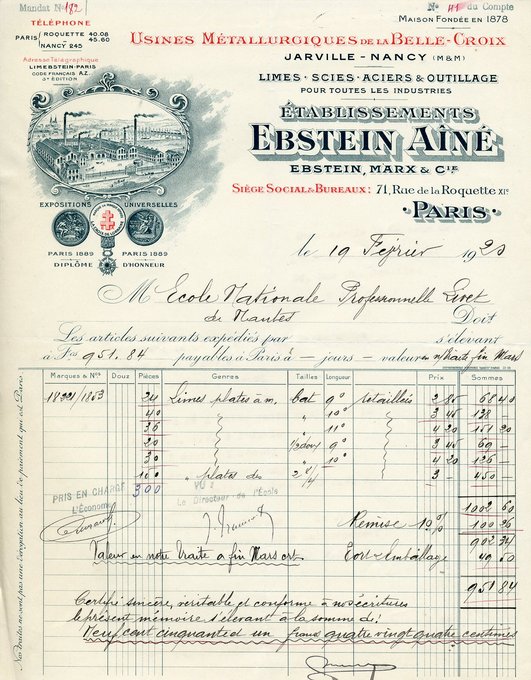 Mandat N° 182
N° 41 du Compte
TÉLÉPHONE
PARIS { ROQUETTE 40.08
45.60
NANCY 245
Adresse Télégraphique
LIMEBSTEIN-PARIS
CODE FRANÇAIS A.Z.
3e ÉDITION
MAISON FONDÉE EN 1878
USINES MÉTALLURGIQUES DE LA BELLE-CROIX
JARVILLE - NANCY (M&M)
LIMES · SCIES · ACIERS & OUTILLAGE
POUR TOUTES LES INDUSTRIES
ÉTABLISSEMENTS
EBSTEIN AÎNÉ
EBSTEIN, MARX & CIE
SIÈGE SOCIAL & BUREAUX: 71, Rue de la Roquette XIe
· PARIS ·
EXPOSITIONS UNIVERSELLES
PARIS 1889 PARIS 1889
DIPLÔME D'HONNEUR
le 19 Février 1920
M Ecole Nationale Professionnelle Livet
de Nantes Doit
Les articles suivants expédiés par s'élevant
à Frs 951.84 payables à Paris à — jours — valeur en n/traite fin Mars
Marques & Nos Douz Pièces Genres Tailles Longueur Prix Sommes
24 Limes plates à m. bat 9° retaillées 2 85 68 40
40 " 10° 3 45 138 —
36 " 11° 4 20 151 20
20 1/2 douy 9° 3 45 69 —
30 " 11° 4 20 126 —
" plates 3 — 450 —
300
PRIS EN CHARGE
L'Économe
VU :
Le Directeur de l'École
1002 60
Remise 10% 100 26
902 34
Valeur en notre traite à fin Mars crt Port & Emballage 49 50
951 84
Certifié sincère, véritable et conforme à nos écritures
le présent mémoire s'élevant à la somme de:
Neuf cent cinquante et un francs quatre vingt quatre centimes
Nos traites ne sont pas une dérogation au lieu de paiement qui est Paris